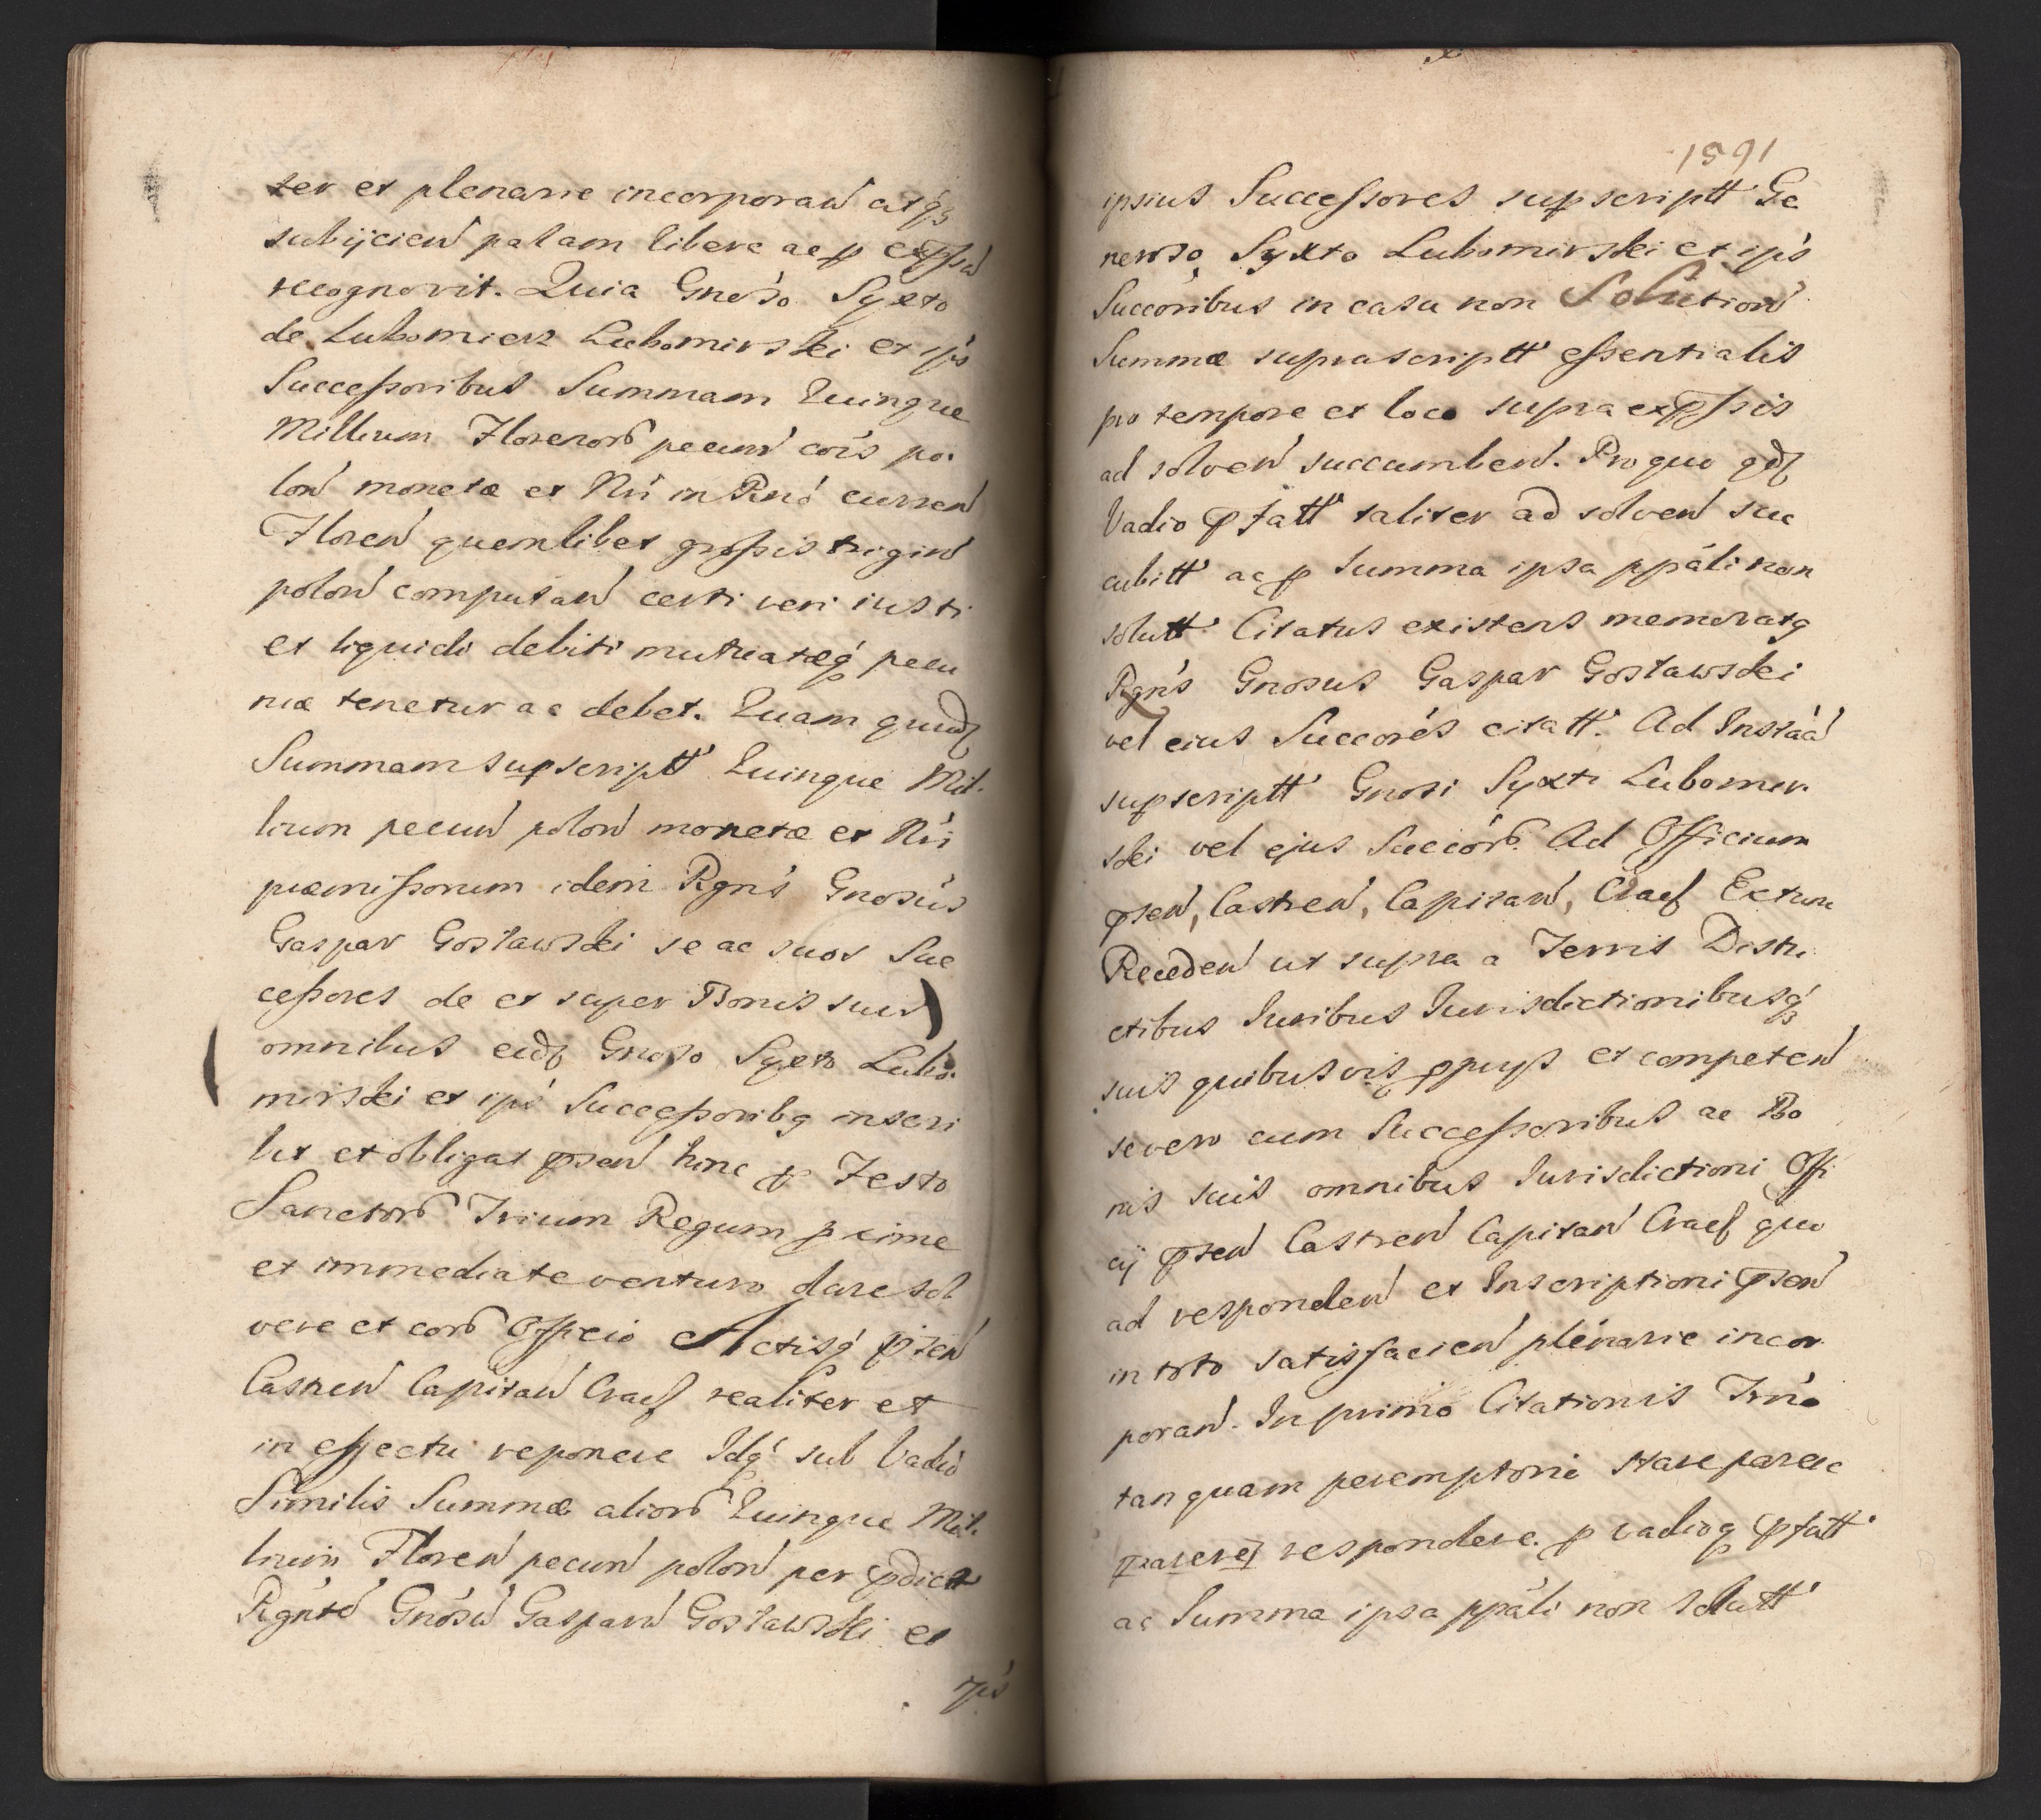 ter et plenarie incorporań atq́ꝫ
subijcień palam libere ac ꝑ expssu
recognovit. Quia Gneŕso Syxto
de Lubomierz Lubomirski et ips
Successoribus Summam Quinque
Millium Florenorꝫ pecuń coīs po
loń monetæ et Nri in Rno curren
Floreń quemlibet grossis trigin
poloń computań certi veri iusti
et liquidi debiti mutuatæq́ꝫ pecu
niæ tenetur ac debet. Quam quidꝫ
Summam supscriptt Quinque Mil-
lium pecuń poloń monetæ et Nri
præmissorum idem Rgns Gnosus
Gaspar Gosławski se ac suos Suc
cessores de et super Bonis suis)
(omnibus eidꝫ Gnoso Syxto Lubo-
mirski et ips Successoribq inscri
bit et obligat p̄seń hinc ꝓ Festo
Sanctorꝫ Trium Regum ꝓxime
et immediate venturo dare sol
vere et corꝫ Officio Actisq́ p̄seń
Castreń Capitań Cracꝭ realiter et
in effectu reponere Idq́ sub Vadio
Similis Summæ aliorꝫ Quinque Mil-
lium Floreń pecuń poloń per p̄dictt
Rgntē Gnosū Gasparū Gosławski et
ips
1591
ipsius Successores supscriptt Ge
neroso Syxto Lubomirski et ips
Succoribus in casu non Solutioń
Summæ suprascriptt essentialis
pro tempore et loco supra exp̄ssis
ad solveń succumbeń. Pro quo qdꝫ
Vadio p̄fatt taliter ad solveń suc
cubitt ac ꝓ Summa ipsa ppāli non
solutt Citatus existens memoratq
Rgns Gnosus Gaspar Gosławski
vel eius Succores citatt. Ad Instań
supscriptt Gnosi Syxti Lubomir-
ski vel ejus Succorꝫ. Ad Officium
p̄seń, Castreń, Capitań, Cracꝭ Extunc
Recedeń ut supra a Terris Distri
ctibus Iuribus Iurisdictionibusq́ꝫ
suis quibusvis ꝓprijs et competeń
se vero cum Successoribus ac Bo
nis suis omnibus Iurisdictioni Offi
cij p̄seń Castreń Capitań Cracꝭ quo
ad respondeń et Inscriptioni p̄seń
in toto satisfacień plenarie incor
porań. In primo Citationis Trno
tanquam peremptorie stare parere
[parere] respondere. ꝓ vadioq p̄fatt
ac Summa ipsa ppāli non solutt